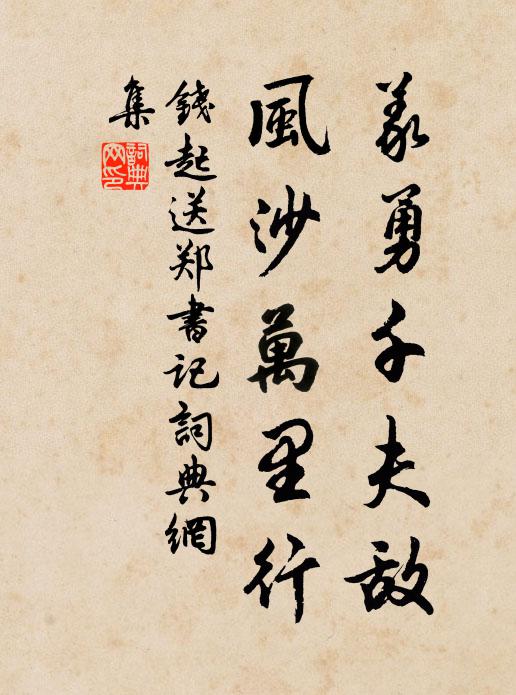 義勇千夫敌
風沙萬里行
錢起送郑書記詞典網
集
詞典
网印